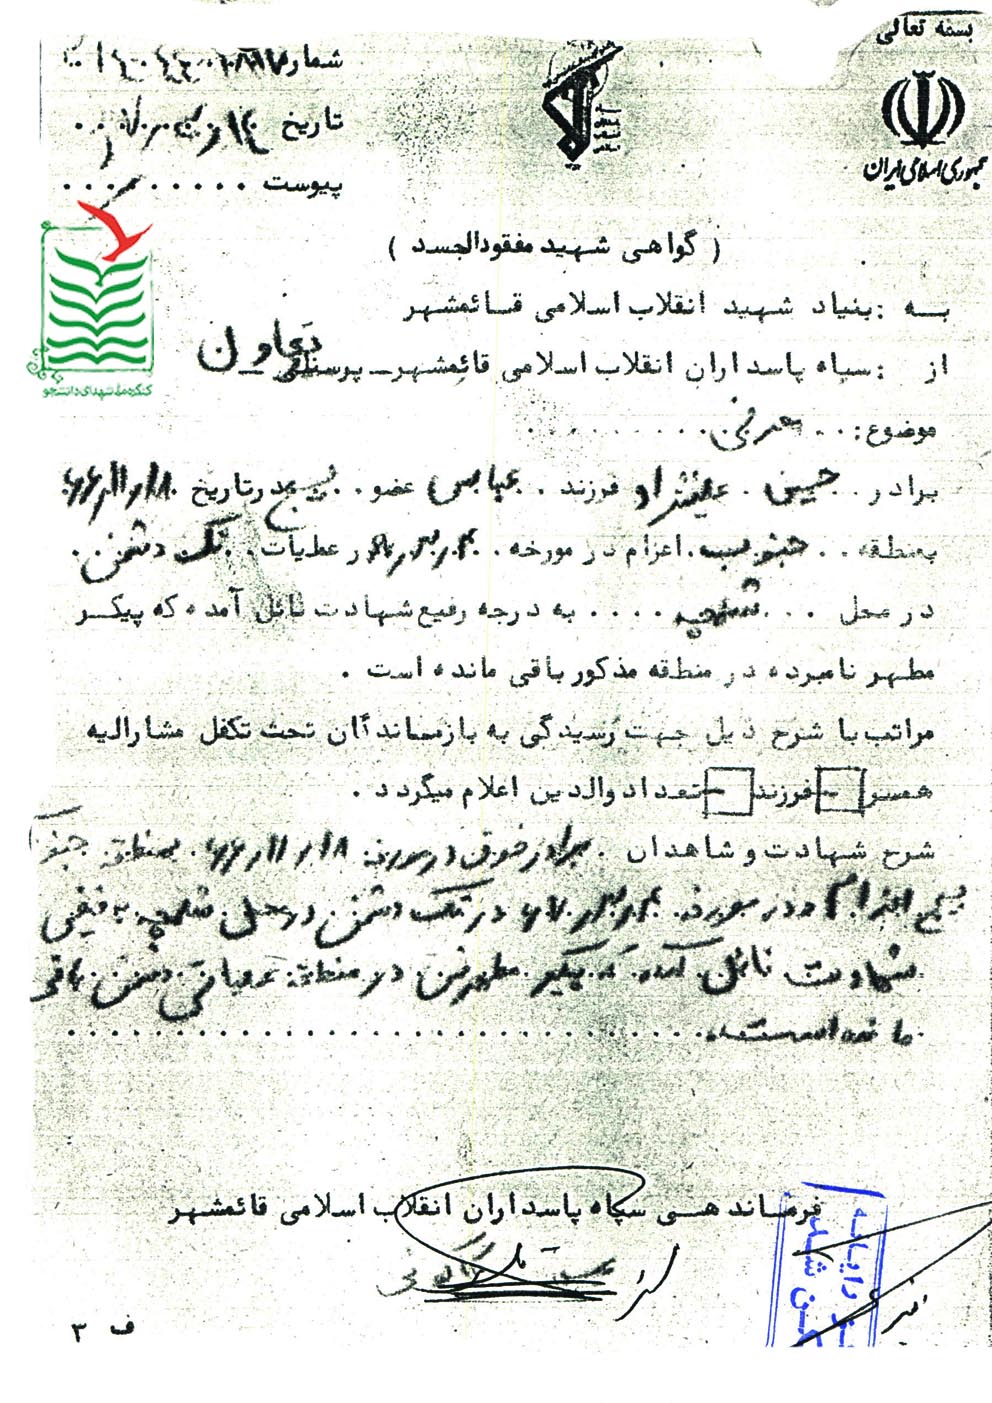 بسمه تعالی
جمهوری اسلامی ایران
شماره
تاریخ
پیوست
کنگره ملی شهدای دانشجو
( گواهی شهید مفقودالجسد )
به : بنیاد شهید انقلاب اسلامی قائمشهر
از : سپاه پاسداران انقلاب اسلامی قائمشهر _ پرسنلی _ تعاون
موضوع : معرفی
برادر حسین علینژاد فرزند عباس عضو بسیج در تاریخ ۶۶/۱۱/۱۸
بمنطقه جنوب اعزام در مورخه عملیات تک دشمن
در محل شلمچه به درجه رفیع شهادت نائل آمده که پیکر
مطهر نامبرده در منطقه مذکور باقی مانده است .
مراتب با شرح ذیل جهت رسیدگی به بازماندگان تحت تکفل مشارالیه
همسر فرزند تعداد والدین اعلام میگردد .
شرح شهادت و شاهدان برادر فوق در مورخه ۶۶/۱۱/۱۸ بمنطقه جنوب
اعزام و در مورخه در تک دشمن در محل شلمچه به فیض
شهادت نائل آمده که پیکر مطهرش در منطقه عملیاتی دشمن باقی
مانده است
فرماندهی سپاه پاسداران انقلاب اسلامی قائمشهر
ف ۳